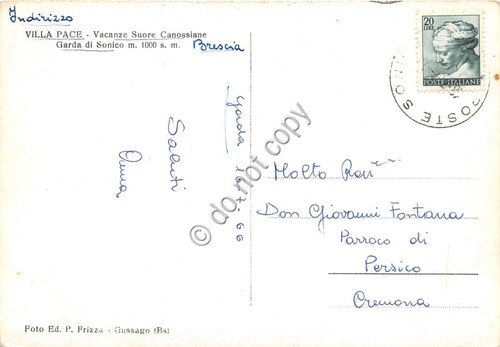 Indirizzo
VILLA PACE - Vacanze Suore Canossiane
Garda di Sonico m. 1000 s. m.
Brescia
Garda 16-7-66
Saluti
Anna
20
LIRE
POSTE ITALIANE
POSTE SO
do not copy
Molto Rev
Don Giovanni Fontana
Parroco di
Persico
Cremona
Foto Ed. P. Frizza - Gussago (Bs)